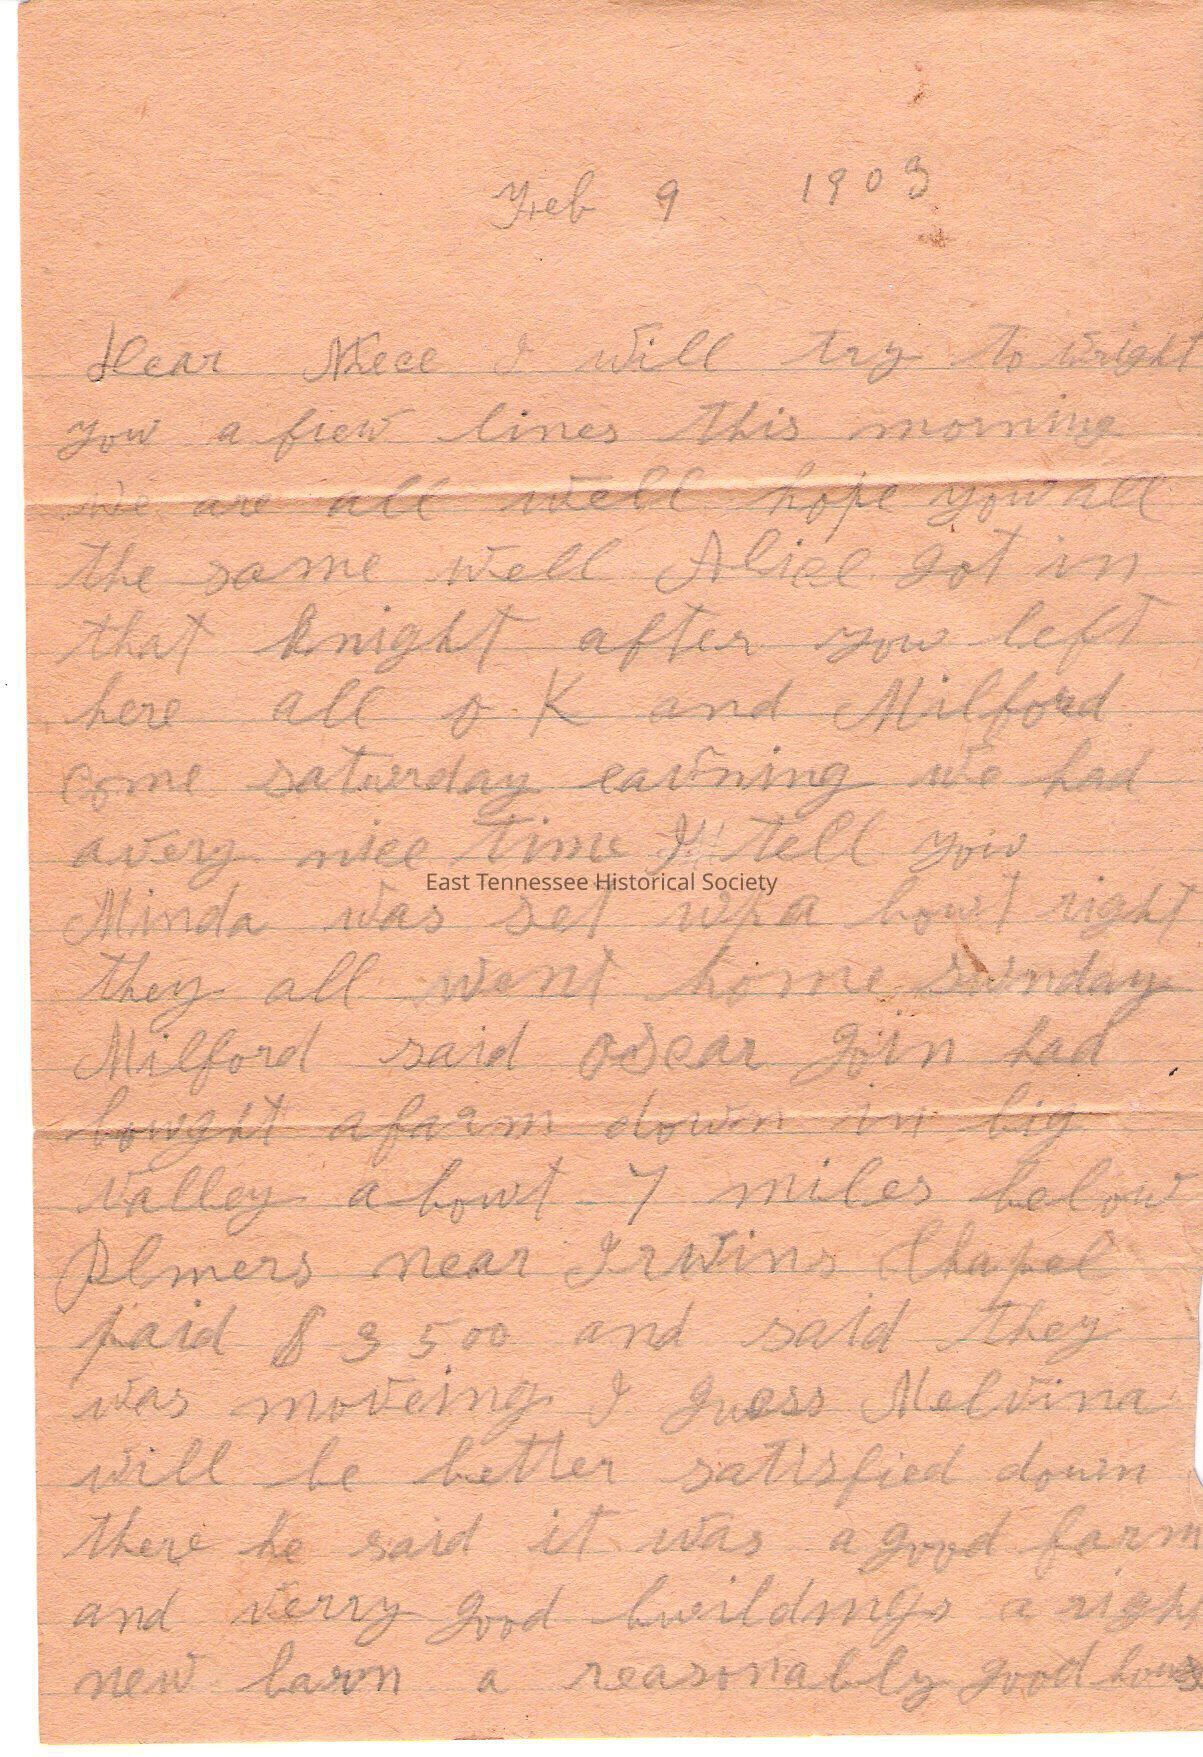 Feb 9 1903
Dear Niece I will try to wright
you a fiew lines this morning
we are all well hope you all
the same well Alice got in
that knight after you left
here all o K and Milford
come saturday eavning we had
a very nice time I tell you
East Tennessee Historical Society
Minda was set up a bout right
they all went home sunday
Milford said oscar goin had
bought a farm down in big
valley a bout 7 miles below
Plmers near Irwins Chapel
paid $3500 and said they
was moveing I guess Melvina
will be better satisfied down
there he said it was a good farm
and verry good buildings a right
new barn a reasonably good house